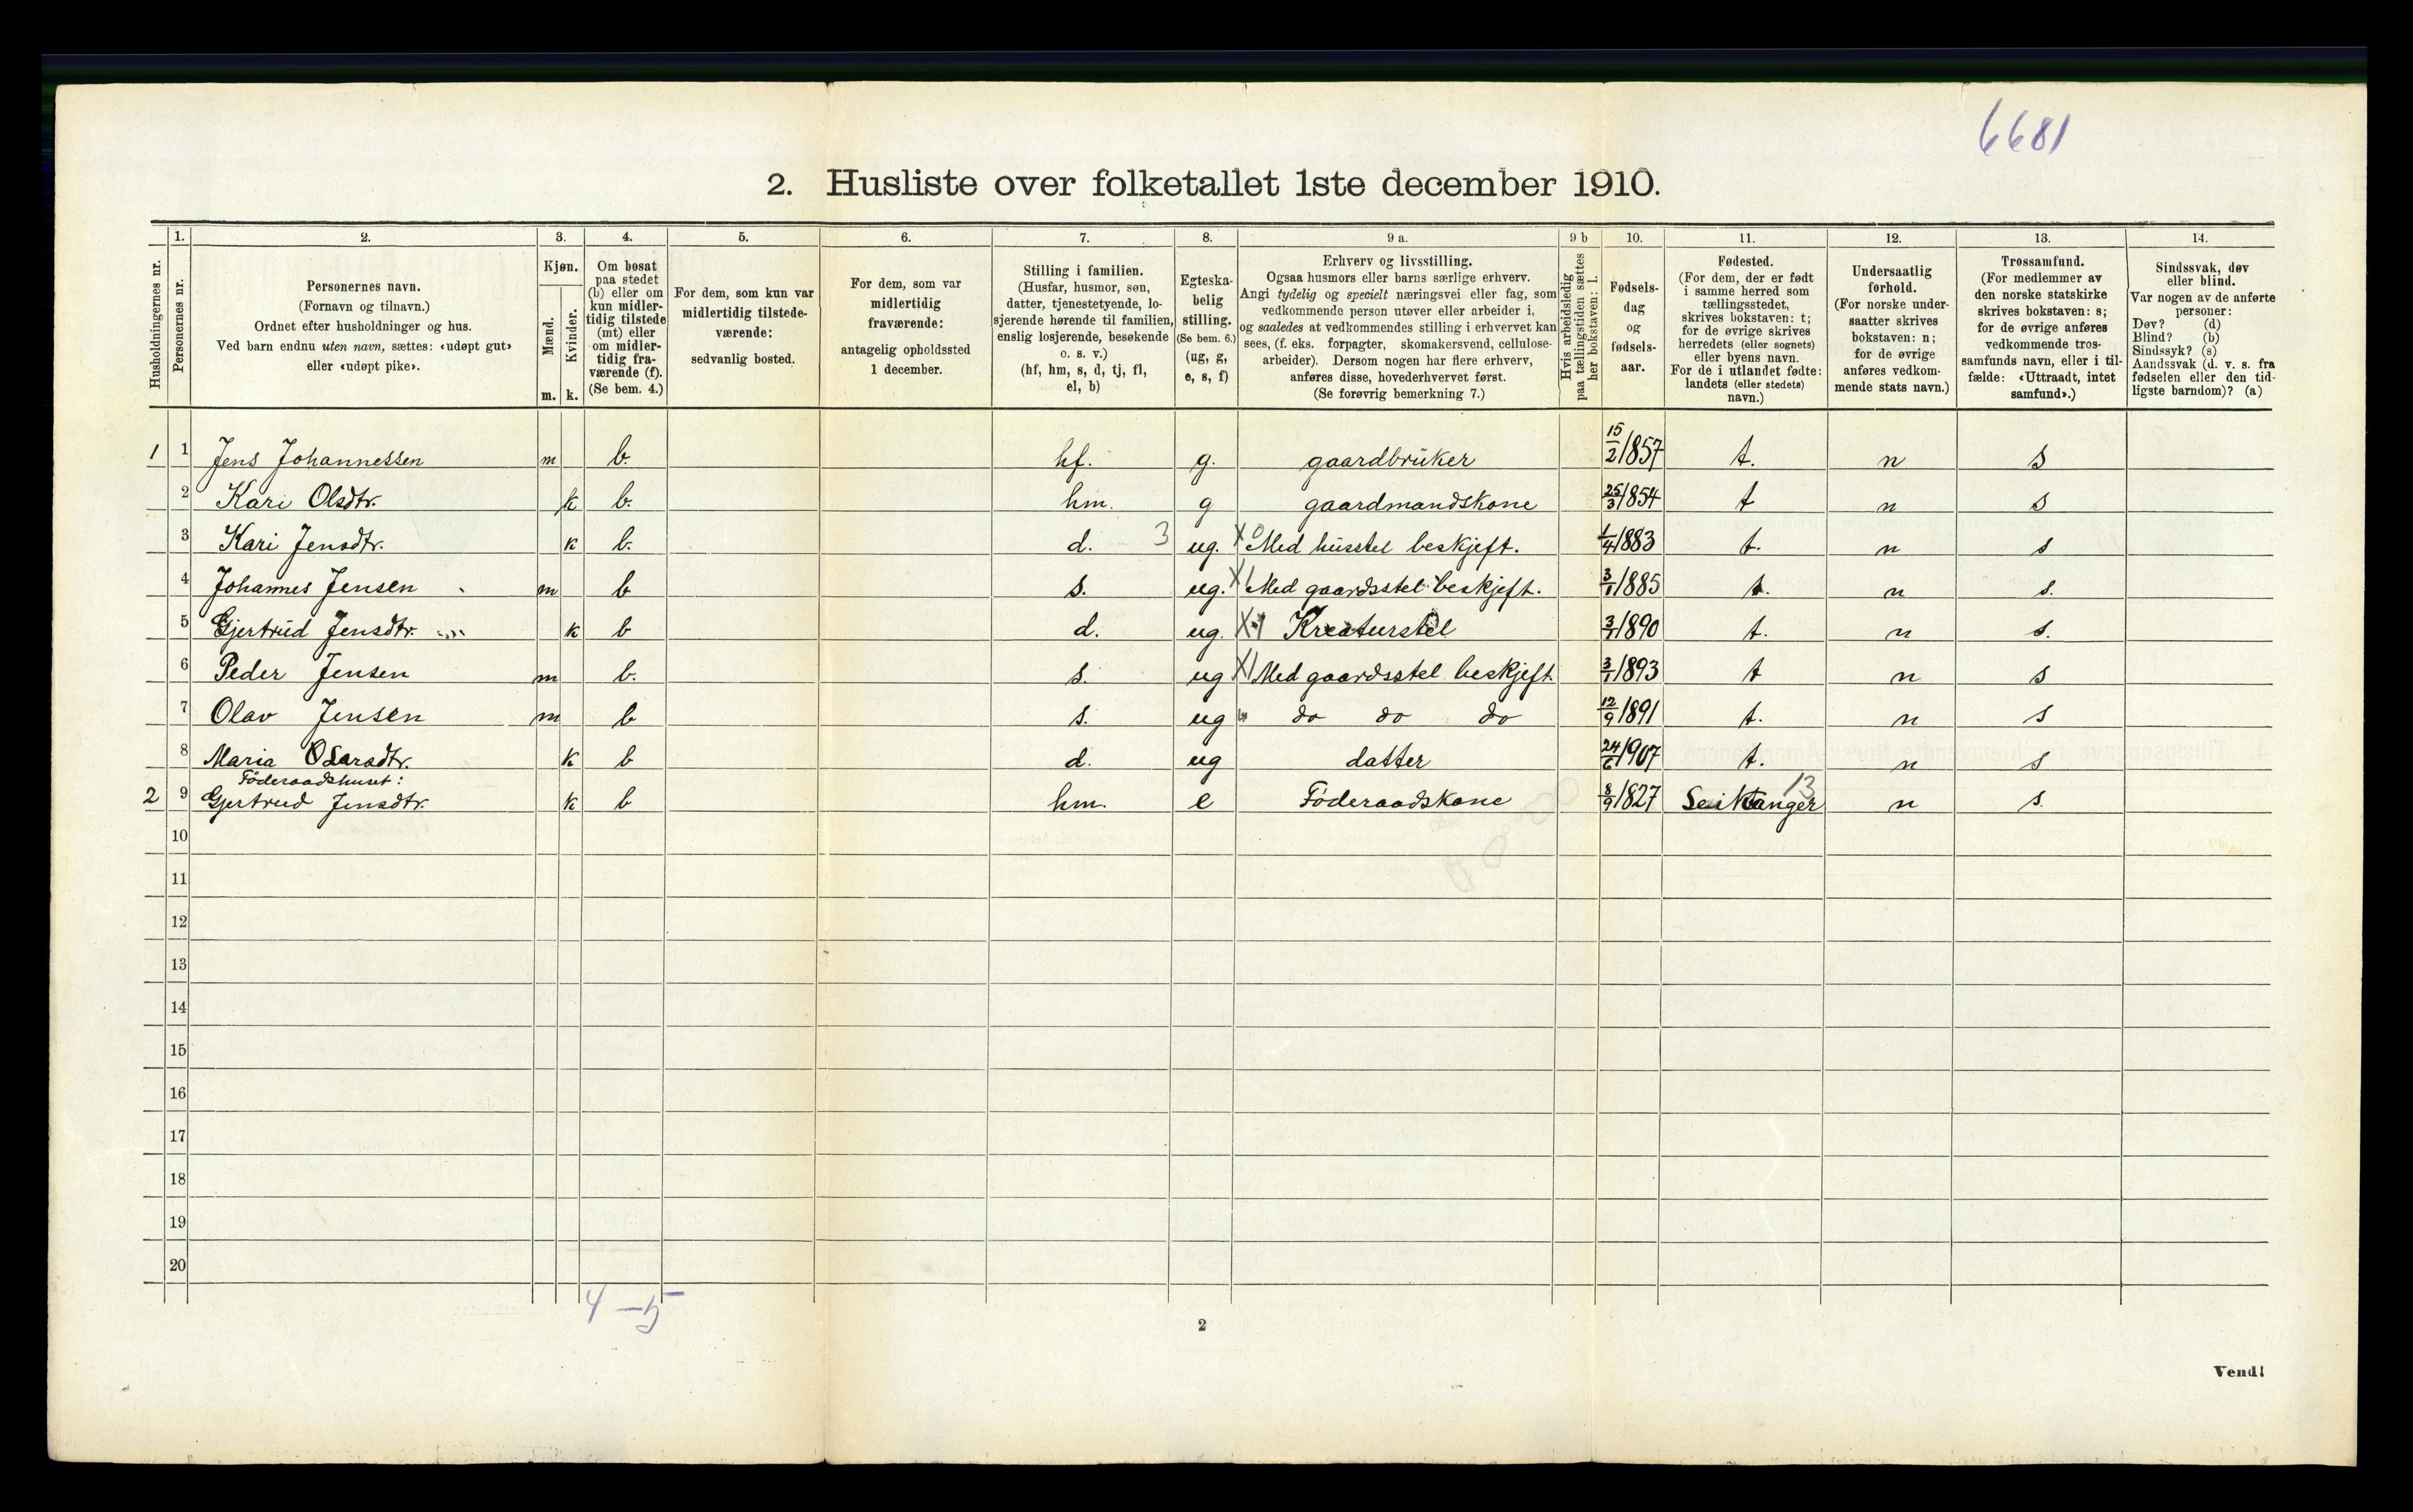 6681
2. Husliste over folketallet 1ste december 1910.
Husholdningernes nr.
1. Personernes nr.
2.
Personernes navn.
(Fornavn og tilnavn.)
Ordnet efter husholdninger og hus.
Ved barn endnu uten navn, sættes: «udøpt gut»
eller «udøpt pike».
3.
Kjøn.
Mænd. Kvinder.
m. k.
4.
Om bosat
paa stedet
(b) eller om
kun midler-
tidig tilstede
(mt) eller
om midler-
tidig fra-
værende (f).
(Se bem. 4.)
5.
For dem, som kun var
midlertidig tilstede-
værende:
sedvanlig bosted.
6.
For dem, som var
midlertidig
fraværende:
antagelig opholdssted
1 december.
7.
Stilling i familien.
(Husfar, husmor, søn,
datter, tjenestetyende, lo-
sjerende hørende til familien,
enslig losjerende, besøkende
o. s. v.)
(hf, hm, s, d, tj, fl,
el, b)
8.
Egteska-
belig
stilling.
(Se bem. 6.)
(ug, g,
e, s, f)
9 a.
Erhverv og livsstilling.
Ogsaa husmors eller barns særlige erhverv.
Angi tydelig og specielt næringsvei eller fag, som
vedkommende person utøver eller arbeider i,
og saaledes at vedkommendes stilling i erhvervet kan
sees, (f. eks. forpagter, skomakersvend, cellulose-
arbeider). Dersom nogen har flere erhverv,
anføres disse, hovederhvervet først.
(Se forøvrig bemerkning 7.)
9 b
Hvis arbeidsledig
paa tællingstiden sættes
her bokstaven: l.
10.
Fødsels-
dag
og
fødsels-
aar.
11.
Fødested.
(For dem, der er født
i samme herred som
tællingsstedet,
skrives bokstaven: t;
for de øvrige skrives
herredets (eller sognets)
eller byens navn.
For de i utlandet fødte:
landets (eller stedets)
navn.)
12.
Undersaatlig
forhold.
(For norske under-
saatter skrives
bokstaven: n;
for de øvrige
anføres vedkom-
mende stats navn.)
13.
Trossamfund.
(For medlemmer av
den norske statskirke
skrives bokstaven: s;
for de øvrige anføres
vedkommende tros-
samfunds navn, eller i til-
fælde: «Uttraadt, intet
samfund».)
14.
Sindssvak, døv
eller blind.
Var nogen av de anførte
personer:
Døv? (d)
Blind? (b)
Sindssyk? (s)
Aandssvak (d. v. s. fra
fødselen eller den tid-
ligste barndom)? (a)
1 1 Jens Johannessen m b. hf. g. gaardbruker 15/2 1857 t. n s
2 Kari Olsdtr. k b. hm. g gaardmandskone 25/3 1854 t n s
3 Kari Jensdtr. k b. d. 3 ug. X0 Med husstel beskjeft. 1/4 1883 t. n s
4 Johannes Jensen m b s. ug. X1 Med gaardsstel beskjeft. 3/1 1885 t. n s.
5 Gjertrud Jensdtr. k b d. ug. X Kreaturstel 3/1 1890 t. n s.
6 Peder Jensen m b. s. ug X1 Med gaardsstel beskjeft. 3/1 1893 t n s
7 Olav Jensen m b s. ug do do do 12/9 1891 t. n s
8 Maria k b d. ug datter 24/6 1907 t. n s
Föderaadshuset:
2 9 Gjertrud Jensdtr. k b hm. e Föderaadskone 8/9 1827 Seiktanger 13 n s.
10
11
12
13
14
15
16
17
18
19
20
4 – 5
2
Vend!